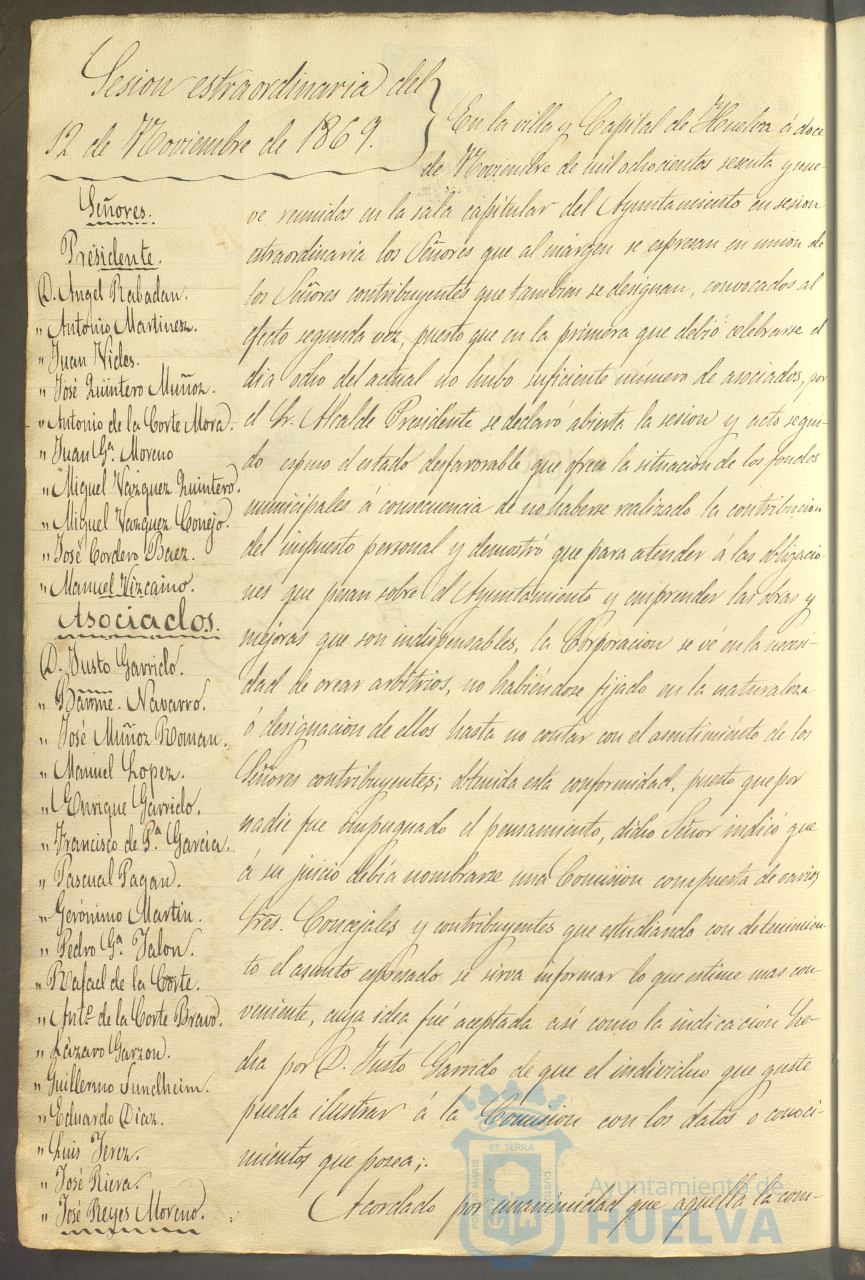 Sesion estraordinaria del
12 de Noviembre de 1869.
Señores.
Presidente.
D. Angel Rabadan.
" Antonio Martinez.
" Juan Vides.
" José Quintero Muñoz.
" Antonio de la Corte Mora.
" Juan Gª Moreno
" Miguel Vazquez Quintero.
" Miguel Vazquez Conejo.
" José Cordero Baez.
" Manuel Vizcaino.
Asociados.
D. Justo Garrido.
" Barmé. Navarro.
" José Muñoz Roman.
" Manuel Lopez.
" Enrique Garrido.
" Francisco de Pª Garcia.
" Pascual Pagan.
" Gerónimo Martin.
" Pedro Gª Jalon.
" Rafael de la Corte.
" Antº de la Corte Bravo.
" Lázaro Garzon.
" Guillermo Sundheim.
" Eduardo Diaz.
" Luis Jerez.
" José Riera.
" José Reyes Moreno.
En la villa y Capital de Huelva á doce
de Noviembre de mil ochocientos sesenta y nue-
ve reunidos en la sala capitular del Ayuntamiento en sesion
estraordinaria los Señores que al márgen se espresan en union de
los Señores contribuyentes que tambien se designan, convocados al
efecto segunda vez, puesto que en la primera que debió celebrarse el
dia ocho del actual no hubo suficiente número de asociados, por
el Sr. Alcalde Presidente se declaró abierta la sesion y acto segui-
do espuso el estado desfavorable que ofrece la situacion de los fondos
municipales á consecuencia de no haberse realizado la contribucion
del impuesto personal y demostró que para atender á las obligacio-
nes que pesan sobre el Ayuntamiento y emprender las obras y
mejoras que son indispensables, la Corporacion se vé en la necesi-
dad de crear arbitrios, no habiéndose fijado en la naturaleza
ó designacion de ellos hasta no contar con el asentimiento de los
Señores contribuyentes; obtenida esta conformidad, puesto que por
nadie fue impugnado el pensamiento, dicho Señor indicó que
á su juicio debia nombrarse una Comision compuesta de varios
Srēs. Concejales y contribuyentes que estudiando con detenimien-
to el asunto espresado se sirva informar lo que estime mas con-
veniente, cuya idea fué aceptada así como la indicacion he-
cha por D. Justo Garrido de que el individuo que guste
pueda ilustrar á la Comision con los datos o conoci-
mientos que posea;.
Acordado por unanimidad que aquella la com-
ET TERRÆ
Ayuntamiento de
HUELVA